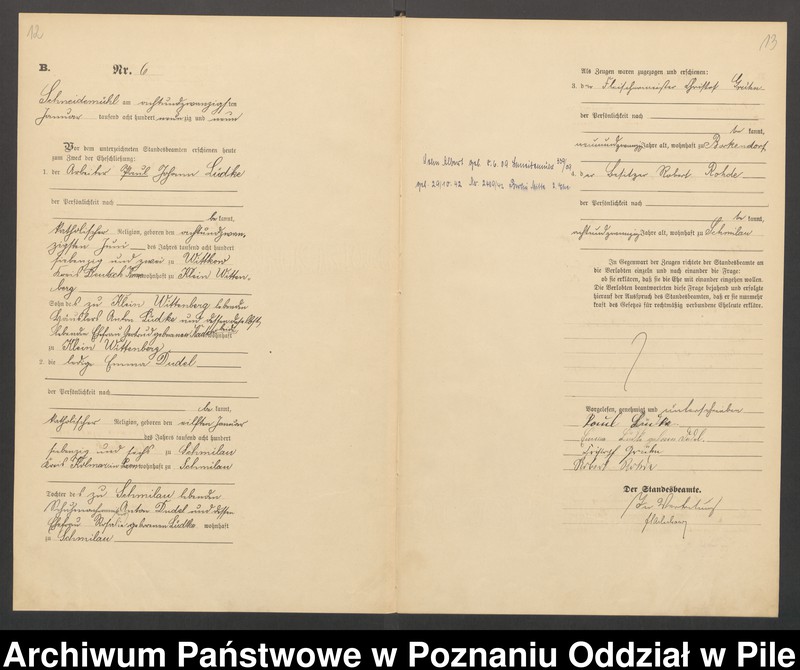 12
B. Nr. 6
Schneidemühl am achtundzwanzigsten
Januar tausend acht hundert neunzig und neun
Vor dem unterzeichneten Standesbeamten erschienen heute
zum Zweck der Eheschließung:
1. der Arbeiter Paul Johann Lüdke
der Persönlichkeit nach
be kannt,
katholischer Religion, geboren den achtundzwan-
zigsten Juni des Jahres tausend acht hundert
siebenzig und zwei zu Wittkow
Kreis Deutsch Krone wohnhaft zu Klein Witten-
berg
Sohn des zu Klein Wittenberg lebenden
Häuslers Anton Lüdke und dessen daselbst
lebende Ehefrau Gertrud geborenen wohnhaft
zu Klein Wittenberg
2. die ledige Emma Dudel
der Persönlichkeit nach
be kannt,
katholischer Religion, geboren den elften Januar
des Jahres tausend acht hundert
siebenzig und sechs zu Schmilau
Kreis Kolmar in Posen wohnhaft zu Schmilau
Tochter des zu Schmilau lebenden
Schuhmachers Anton Dudel und dessen
Ehefrau Rosalie geborenen Lüdke wohnhaft
zu Schmilau
13
Als Zeugen waren zugezogen und erschienen:
3. der Fleischermeister
der Persönlichkeit nach
be kannt,
neunundzwanzig Jahre alt, wohnhaft zu Borkendorf
4. der Besitzer Robert Rohde
der Persönlichkeit nach
be kannt,
achtundzwanzig Jahre alt, wohnhaft zu Schmilau
In Gegenwart der Zeugen richtete der Standesbeamte an
die Verlobten einzeln und nach einander die Frage:
ob sie erklären, daß sie die Ehe mit einander eingehen wollen.
Die Verlobten beantworteten diese Frage bejahend und erfolgte
hierauf der Ausspruch des Standesbeamten, daß er sie nunmehr
kraft des Gesetzes für rechtmäßig verbundene Eheleute erkläre.
Vorgelesen, genehmigt und unterschrieben
Paul Lüdke
Emma Lüdke geborene Dudel
Robert Rohde
Der Standesbeamte.
In Vertretung
Archiwum Państwowe w Poznaniu Oddział w Pile